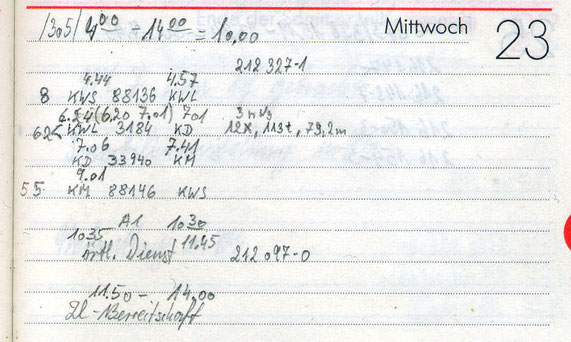 /305/ 4⁰⁰ - 14⁰⁰ = 10.00
Mittwoch 23
212 327-1
4.44 4.57
8 KWS 88136 KWL
6.24 (6.20 7.01) 701
62 KWL 3184 KD 12x, 113t, 79,2m
7.06 7.41
KD 33940 KM
9.01
55 KM 88146 KWS
A1 10 30
10 35 11.45
örtl. Dienst 212 097-0
11.50 - 14.00
Zl-Bereitschaft